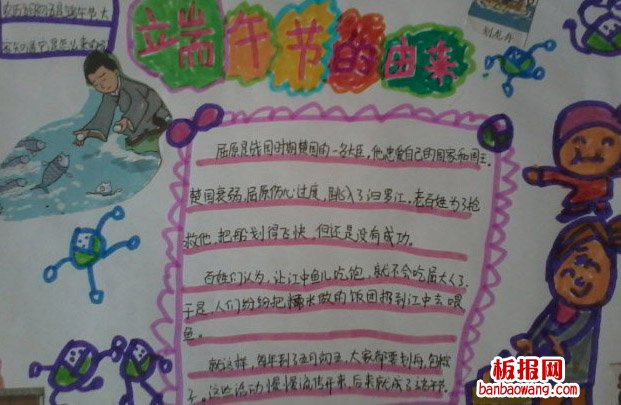 端午节的由来
划龙舟
屈原是战国时期楚国的一名大臣，他忠爱自己的国家和国王。
楚国衰弱，屈原伤心过度，跳入了汨罗江。老百姓为了抢
救他，把船划得飞快，但还是没有成功。
百姓们认为，让江中鱼儿吃饱，就不会吃屈大人了，
于是人们纷纷把糯米做的饭团扔到江中去喂
鱼。
就这样，每年到了五月初五，大家都要划舟，包粽
子。这些活动慢慢流传开来，后来就成了
板报网
banbaowang.com